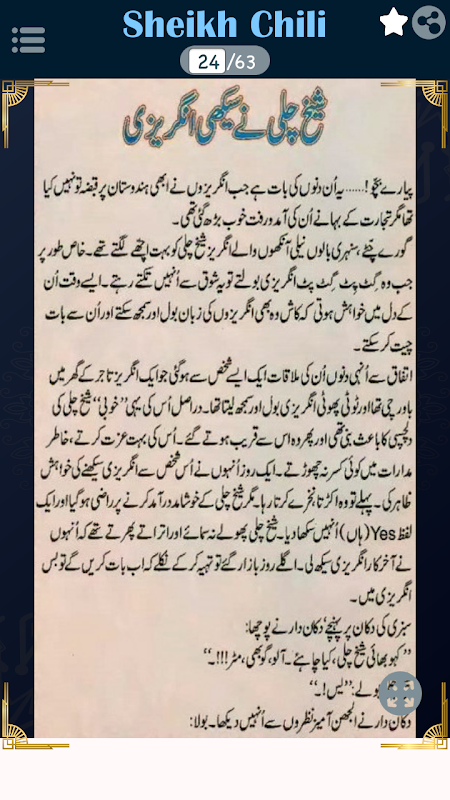 Sheikh Chili
24/63
شیخ چلی نے سیکھی انگریزی
پیارے بچو!......یہ اُن دنوں کی بات ہے جب انگریزوں نے ابھی ہندوستان پر قبضہ تو نہیں کیا
تھا مگر تجارت کے بہانے اُن کی آمد ورفت خوب بڑھ گئی تھی۔
گورے چٹے، سنہری بالوں نیلی آنکھوں والے انگریز شیخ چلی کو بہت اچھے لگتے تھے۔ خاص طور پر
جب وہ گِٹ پِٹ گِٹ پٹ انگریزی بولتے تو یہ شوق سے اُنہیں تکتے رہتے۔ ایسے وقت اُن
کے دل میں خواہش ہوتی کہ کاش وہ بھی انگریزوں کی زبان بول اور سمجھ سکتے اور اُن سے بات
چیت کر سکتے۔
اتفاق سے اُنہی دنوں اُن کی ملاقات ایک ایسے شخص سے ہو گئی جو ایک انگریز تاجر کے گھر میں
باورچی تھا اور ٹوٹی پھوٹی انگریزی بول اور سمجھ لیتا تھا۔ دراصل اُس کی یہی ’’خوبی‘‘ شیخ چلی کی
دلچسپی کا باعث بنی تھی اور پھر وہ اس سے قریب ہوتے گئے۔ اُس کی بہت عزت کرتے، خاطر
مدارات میں کوئی کسر نہ چھوڑتے۔ ایک روز اُنہوں نے اُس شخص سے انگریزی سیکھنے کی خواہش
ظاہر کی۔ پہلے تو وہ اکڑتا نخرے کرتا رہا۔ مگر شیخ چلی کے خوشامد درآمد کرنے پر راضی ہو گیا اور ایک
لفظ Yes (ہاں) اُنہیں سکھا دیا۔ شیخ چلی پھولے نہ سمائے اور اتراتے پھرتے تھے کہ اُنہوں
نے آخر کار انگریزی سیکھ لی۔ اگلے روز بازار گئے تو تہیہ کر کے نکلے کہ اب بات کریں گے تو بس
انگریزی میں۔
سبزی کی دکان پر پہنچے، دکان دار نے پوچھا:
’’کہو بھائی شیخ چلی، کیا چاہئے۔ آلو، گوبھی، مٹر!!!۔‘‘
بولے: ’’یس!۔‘‘
دکان دار نے الجھن آمیز نظروں سے اُنہیں دیکھا۔ بولا: